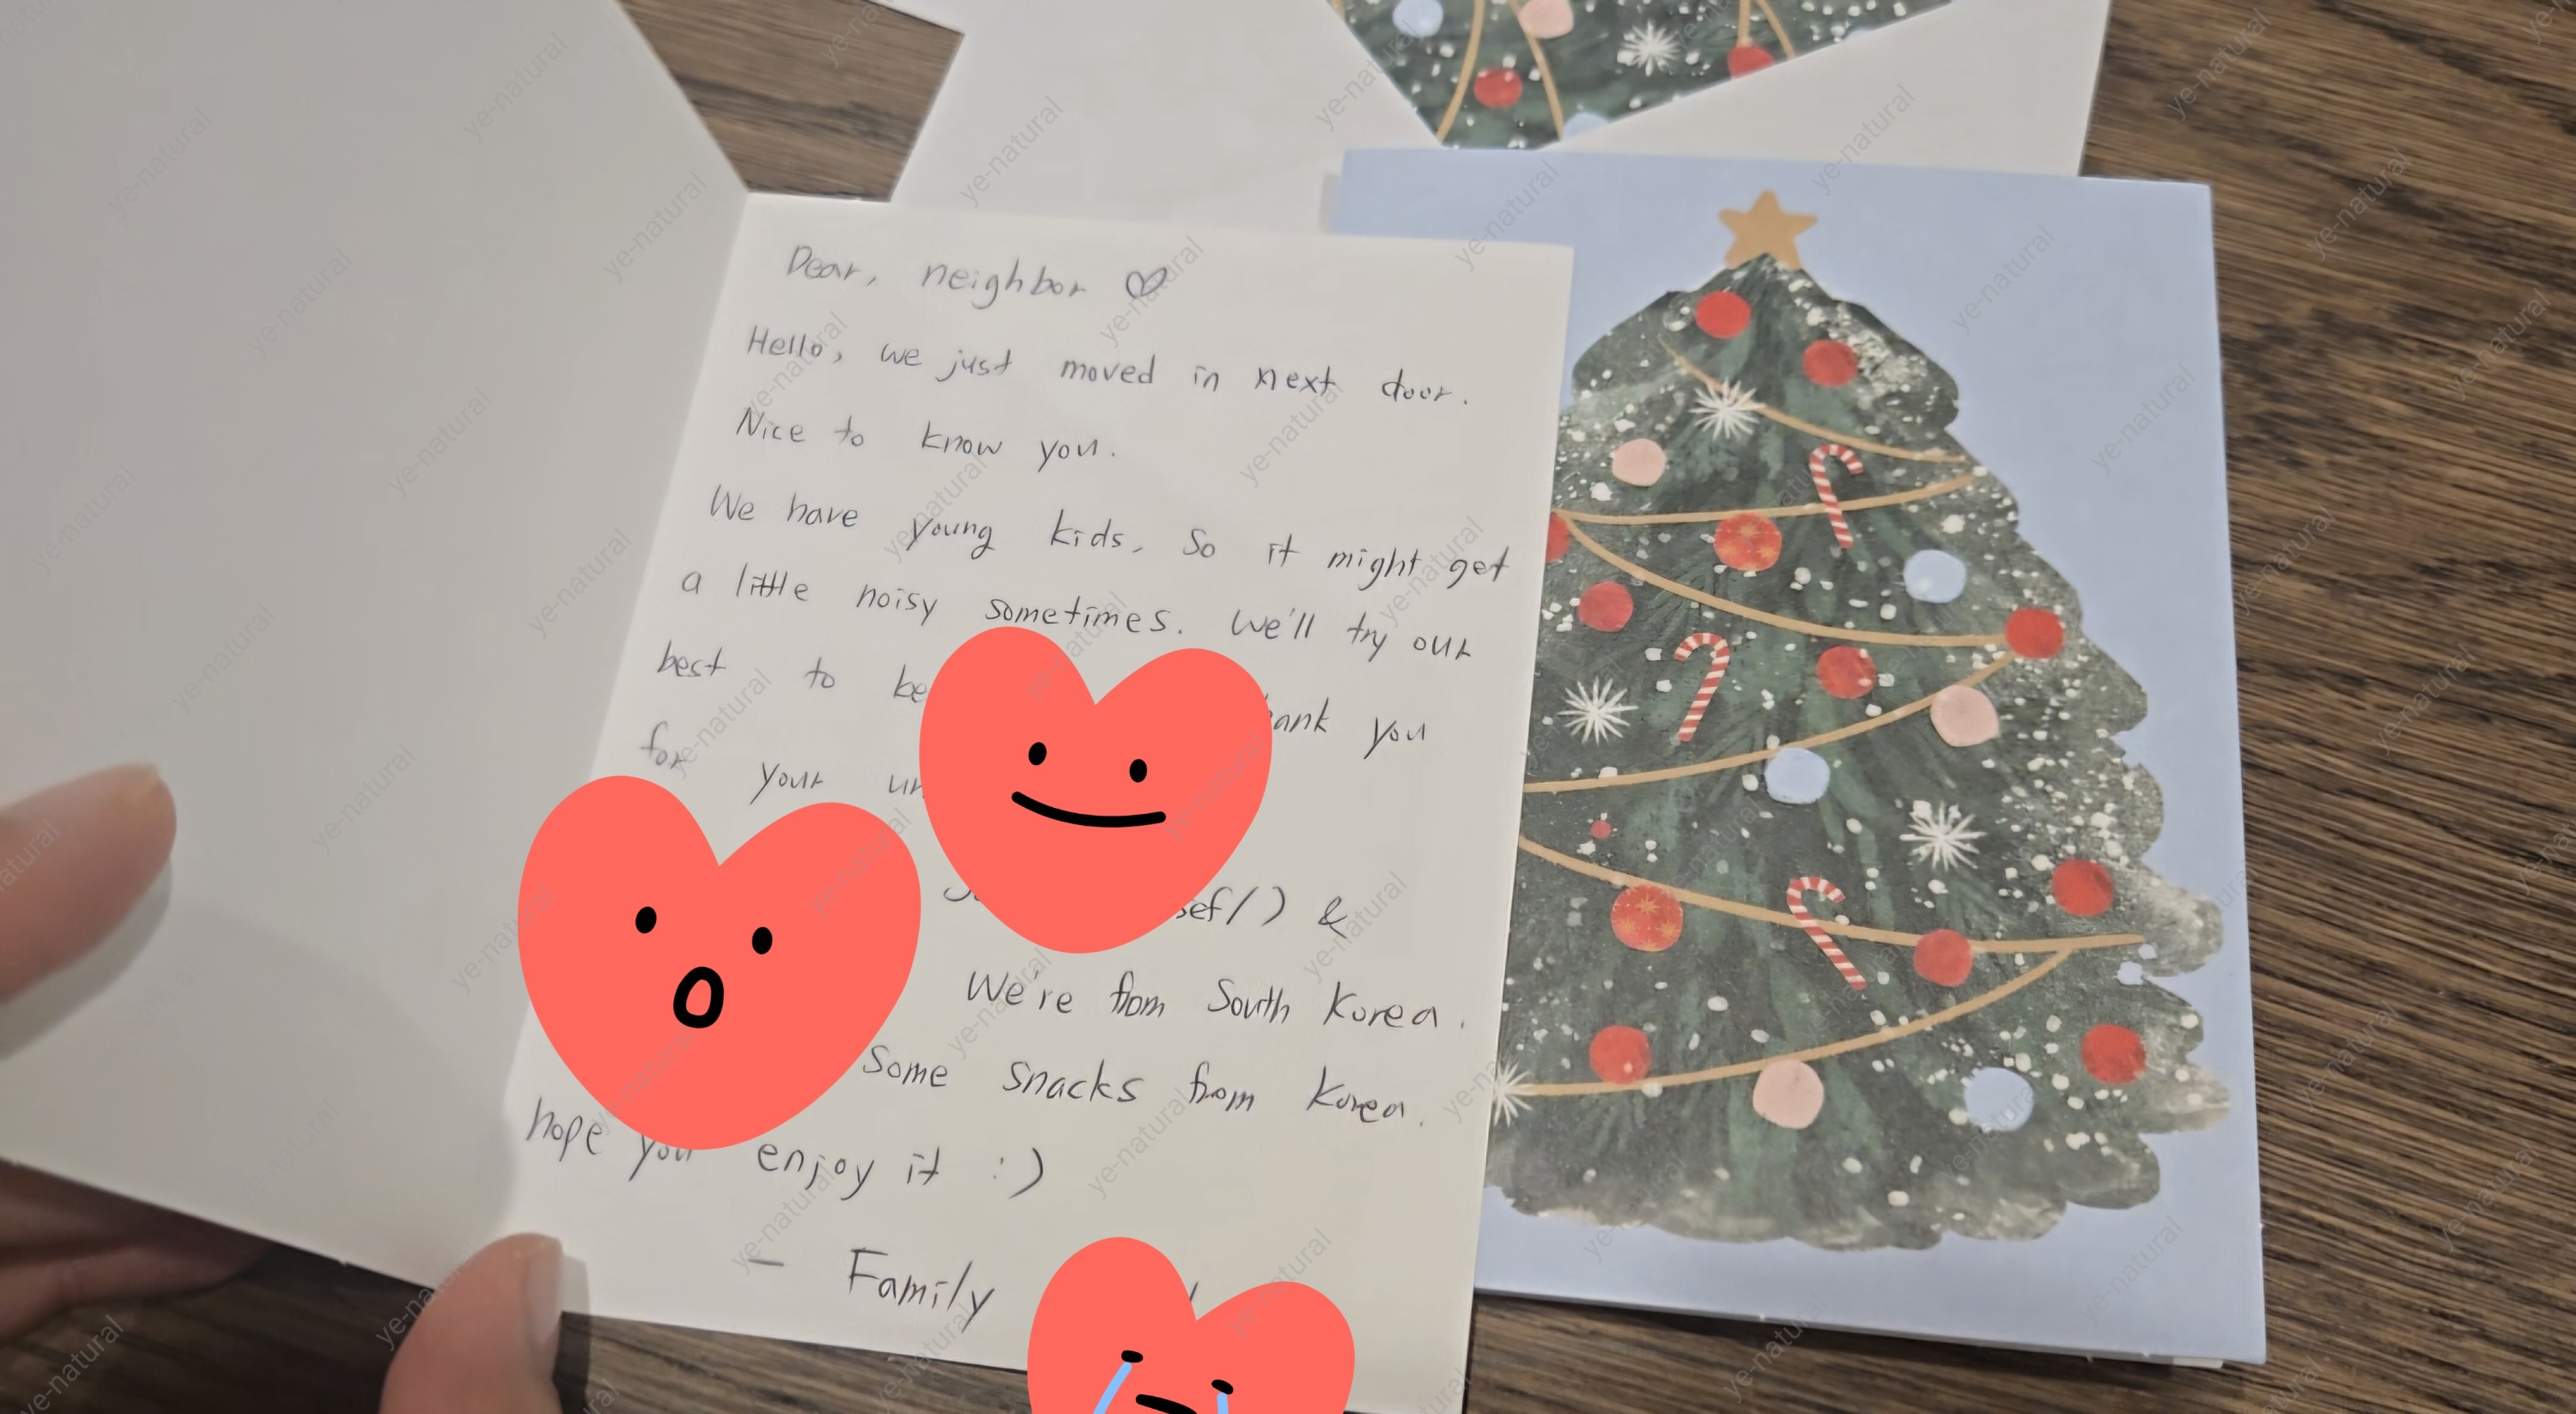 Dear, neighbor ♡
Hello, we just moved in next door.
Nice to know you.
We have young kids, so it might get
a little noisy sometimes. We'll try our
best to be you
for your
&
We're from South Korea.
Some snacks from Korea.
hope you enjoy it :)
- Family
ye-natural